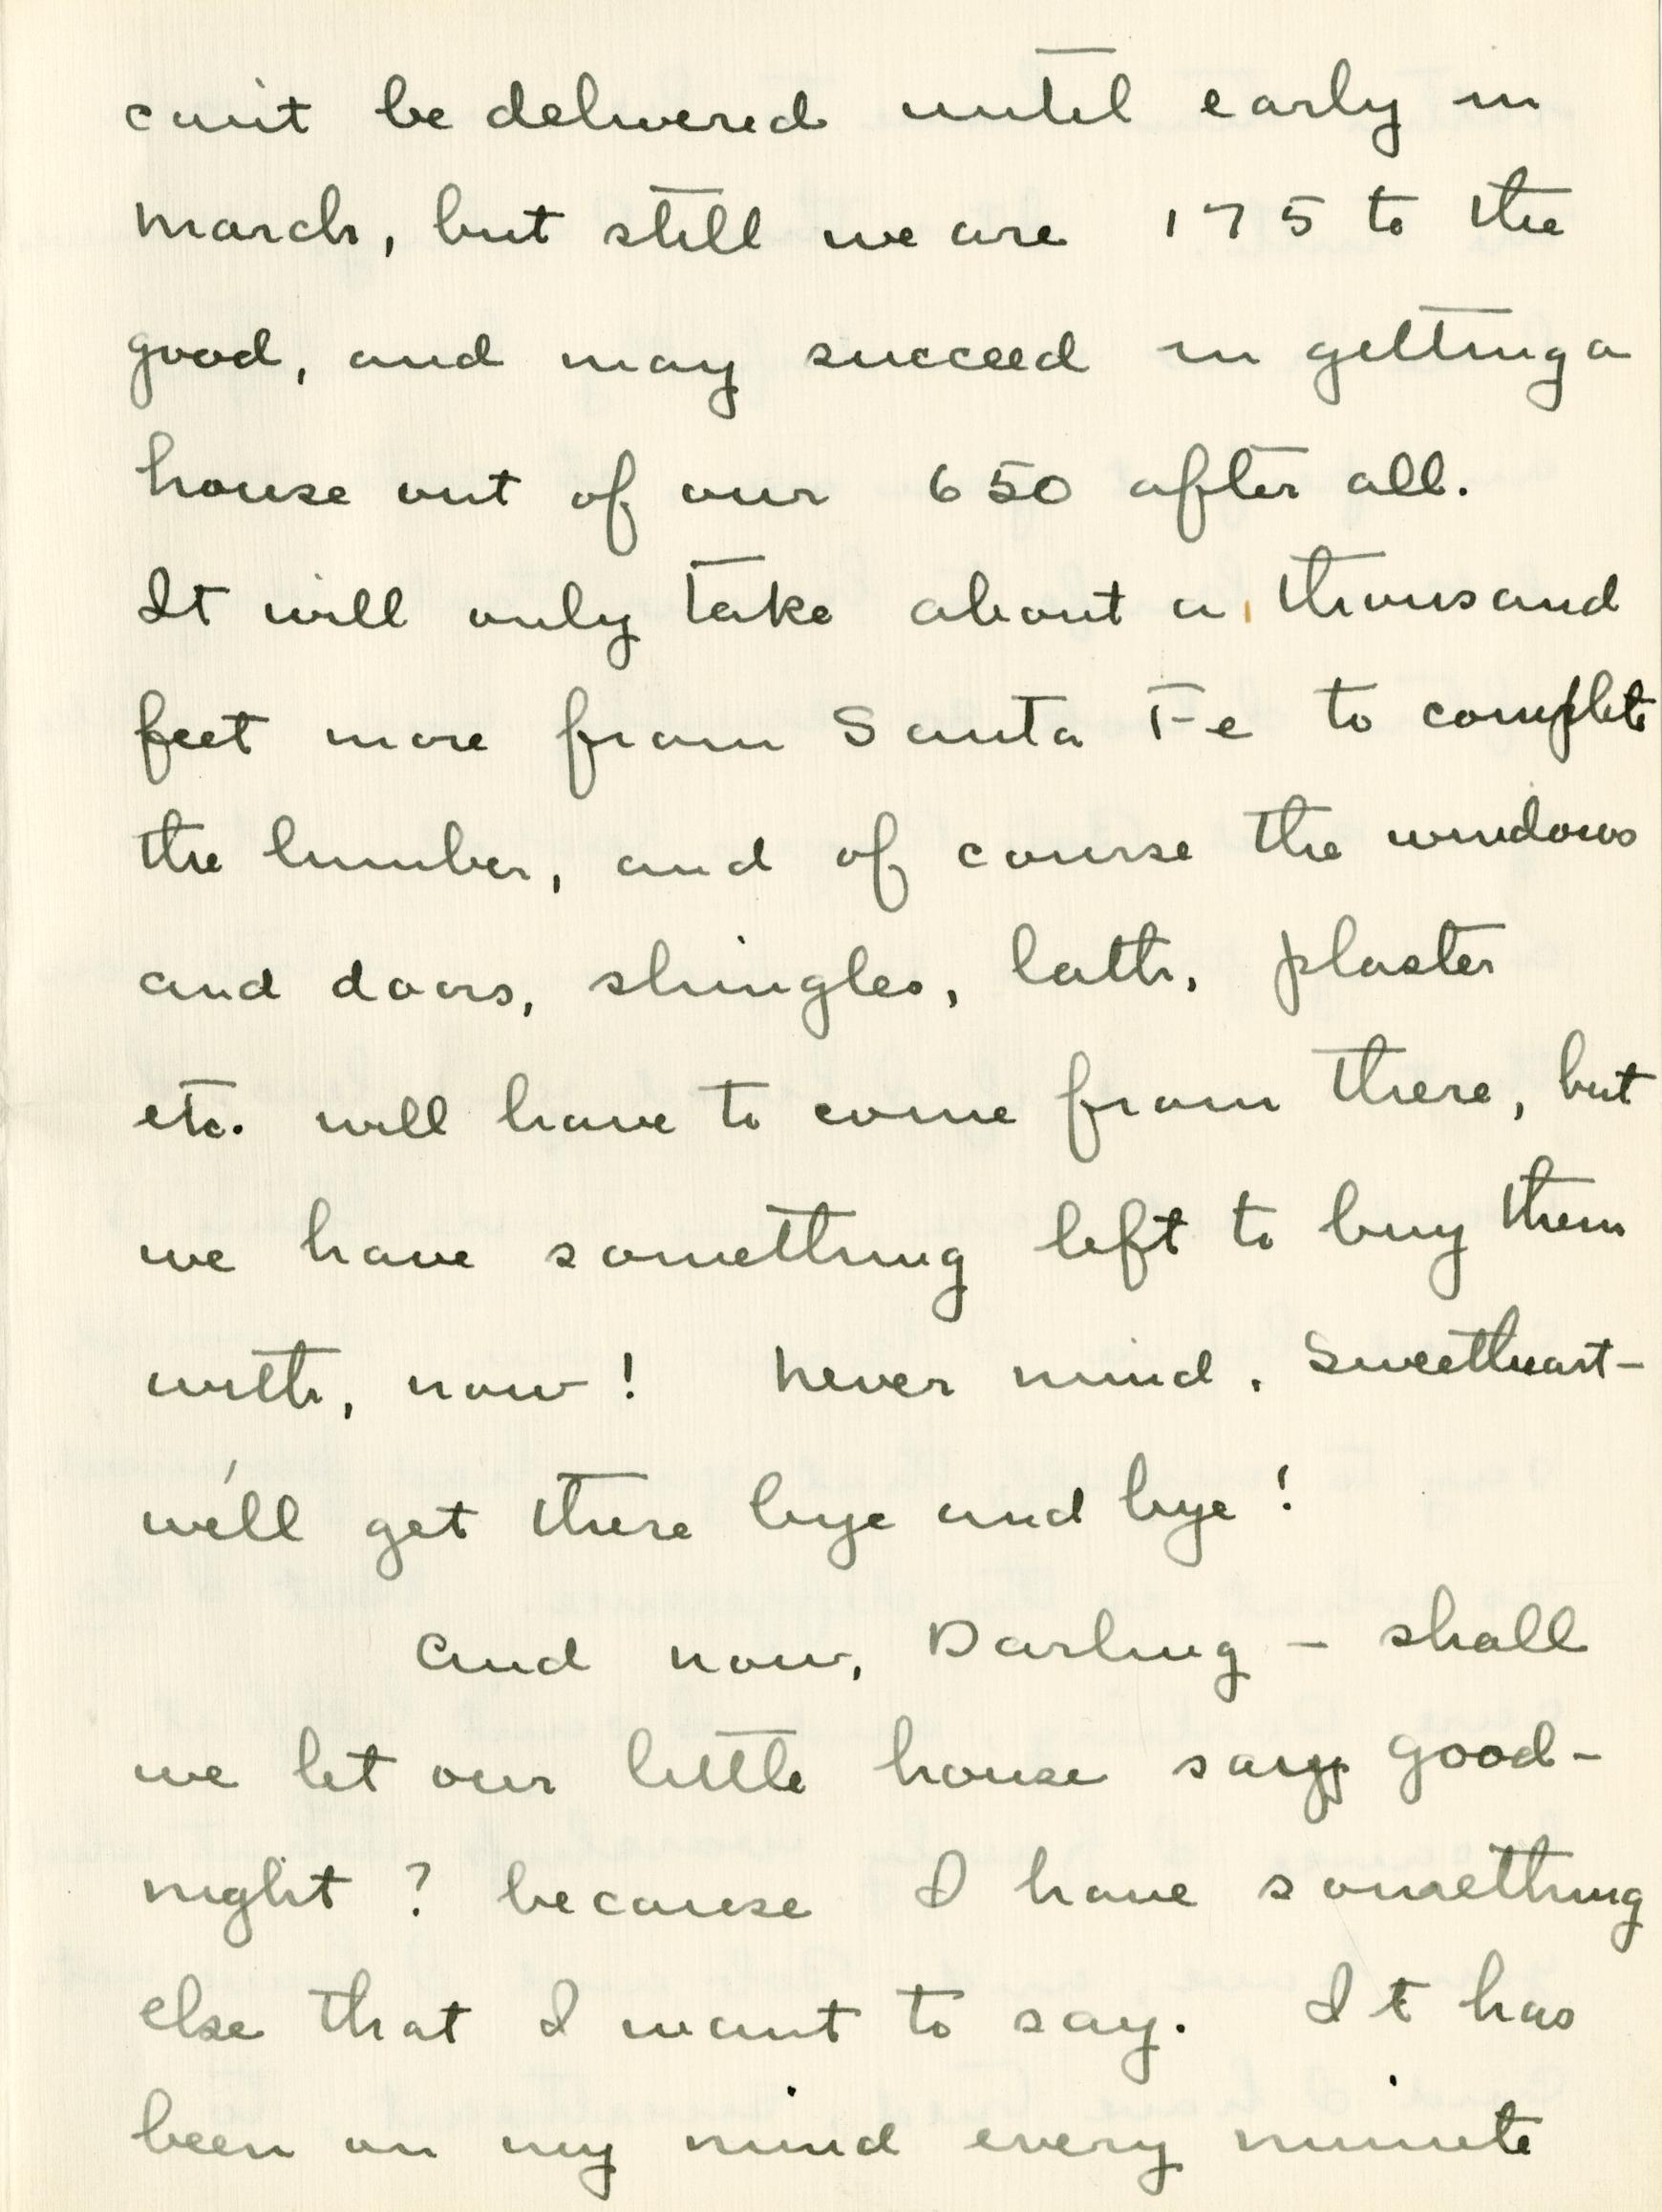 can't be delivered until early in
March, but still we are 175 to the
good, and may succeed in getting a
house out of our 650 after all.
It will only take about a thousand
feet more from Santa Fe to complete
the lumber, and of course the windows
and doors, shingles, lath, plaster
etc. will have to come from there, but
we have something left to buy them
with, now! Never mind, Sweetheart -
we'll get there bye and bye!
And now, Darling - shall
we let our little house say good-
night? because I have something
else that I want to say. It has
been on my mind every minute